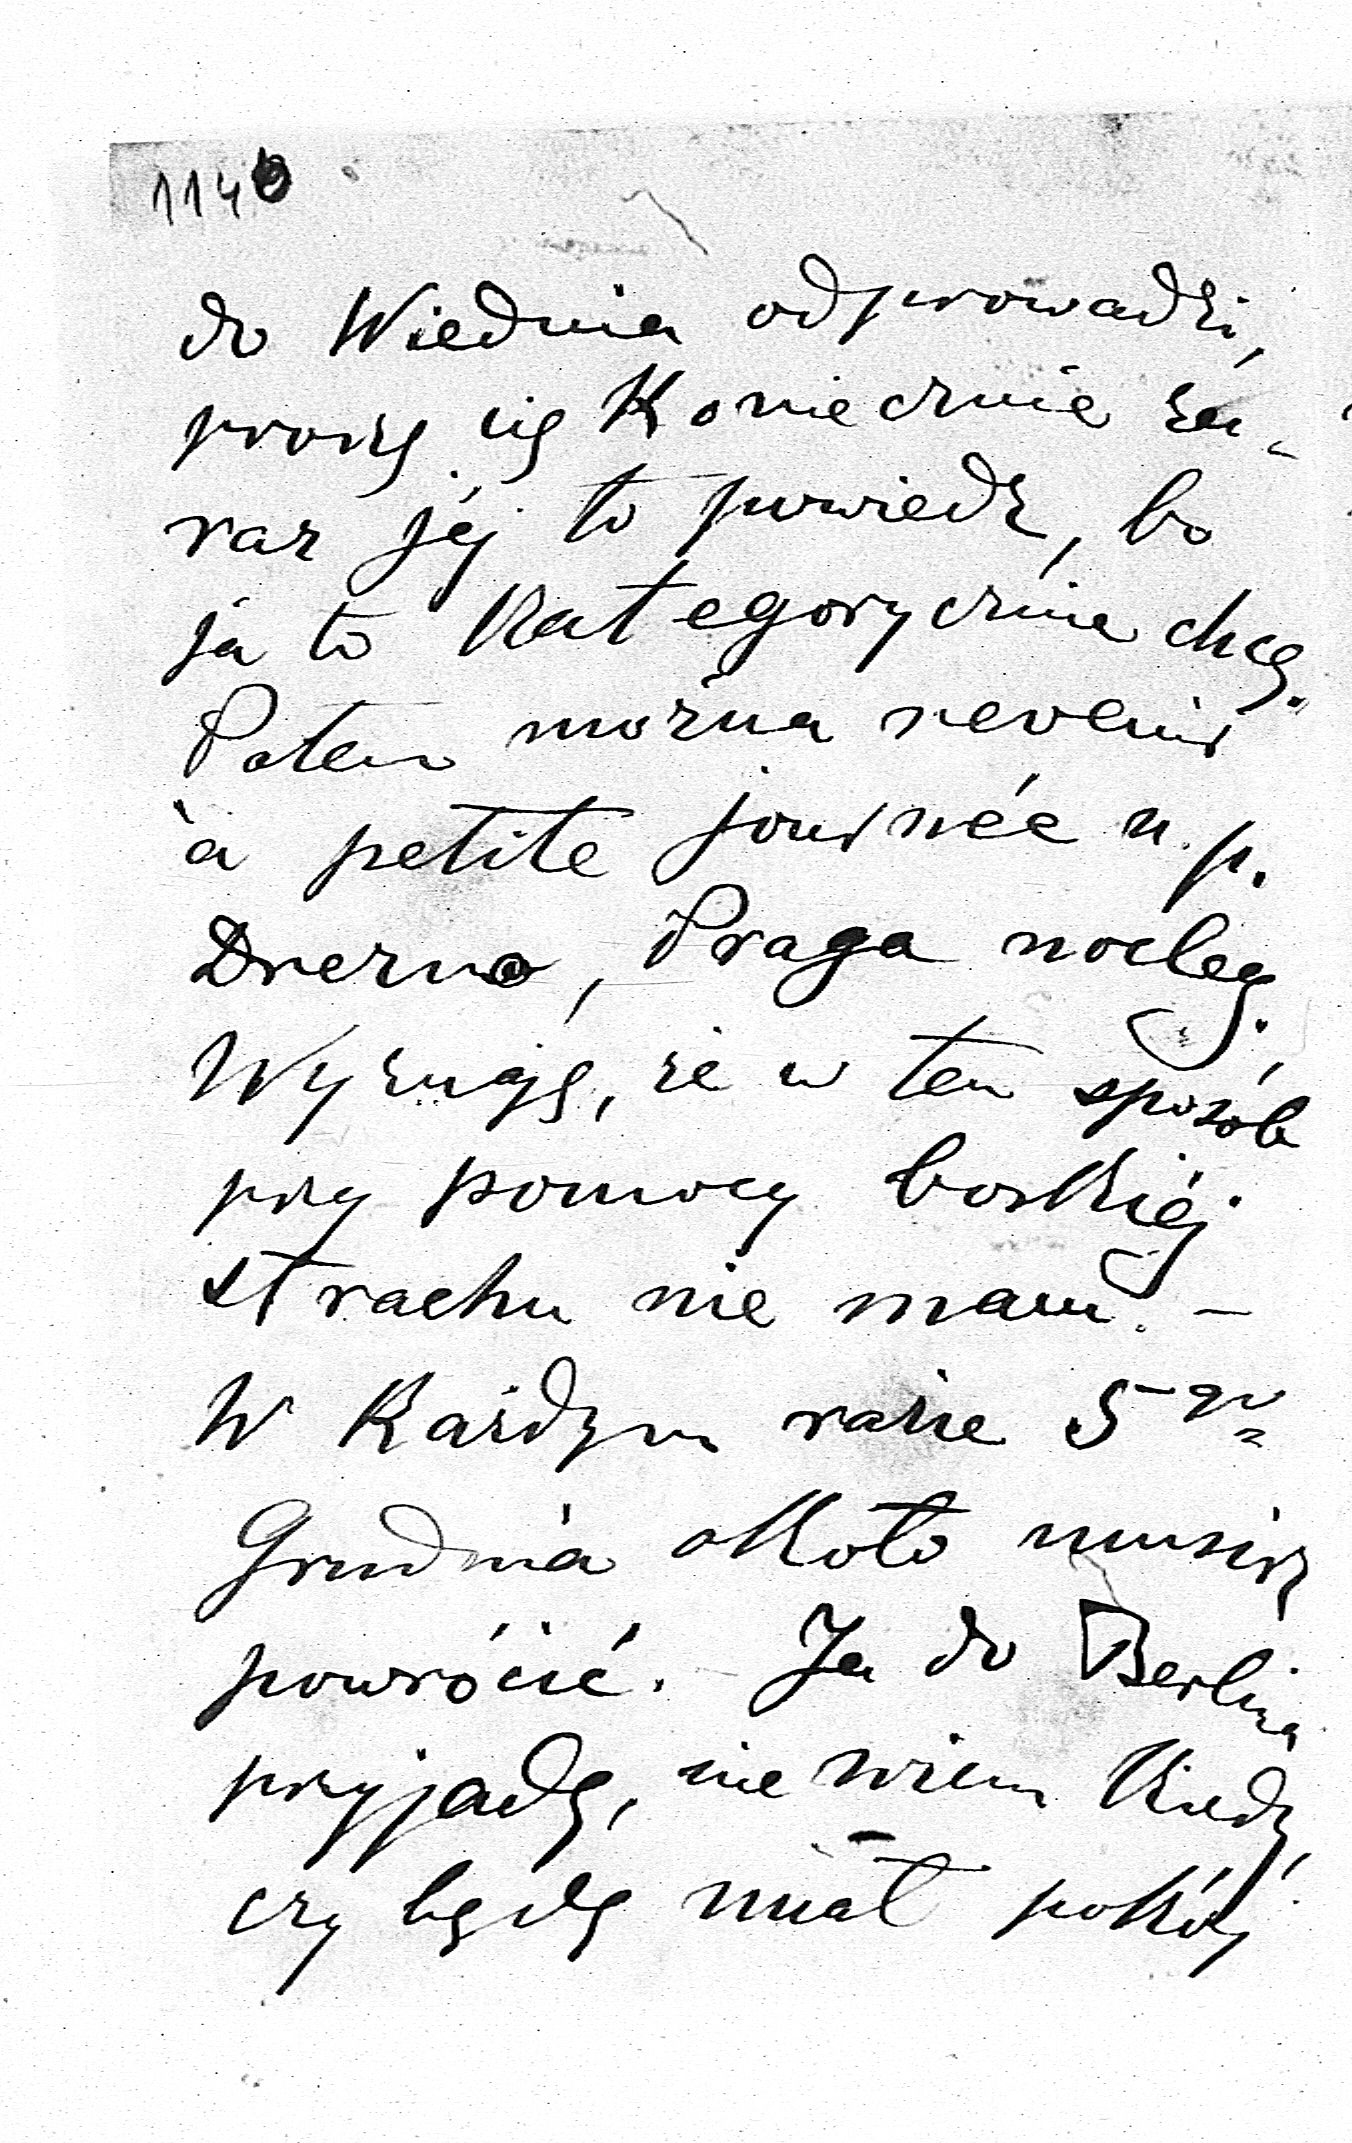 114b
do Wiednia odprowadzi,
proszę cię Koniecznie za-
raz jéj to powiedz, bo
ja to Kategorycznie chcę.
Potem można revenir
à petite journée n.p.
Drezno, Praga nocleg.
Wyznaję, że w ten sposób
przy pomocy boskiéj
strachu nie mam. –
W Każdym razie 5-go
Grudnia około muszę
powrócić. Ja do Berlina
przyjadę, nie wiem Kiedy,
czy będę miał pokój